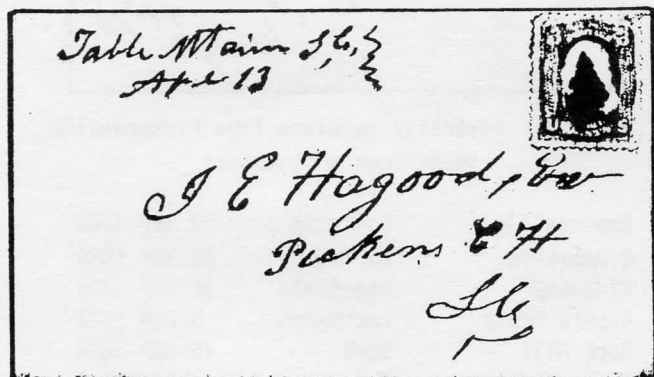 Table Mtain S.C.
Apl 13
J E Hagood, Esq
Pickens C H
S C